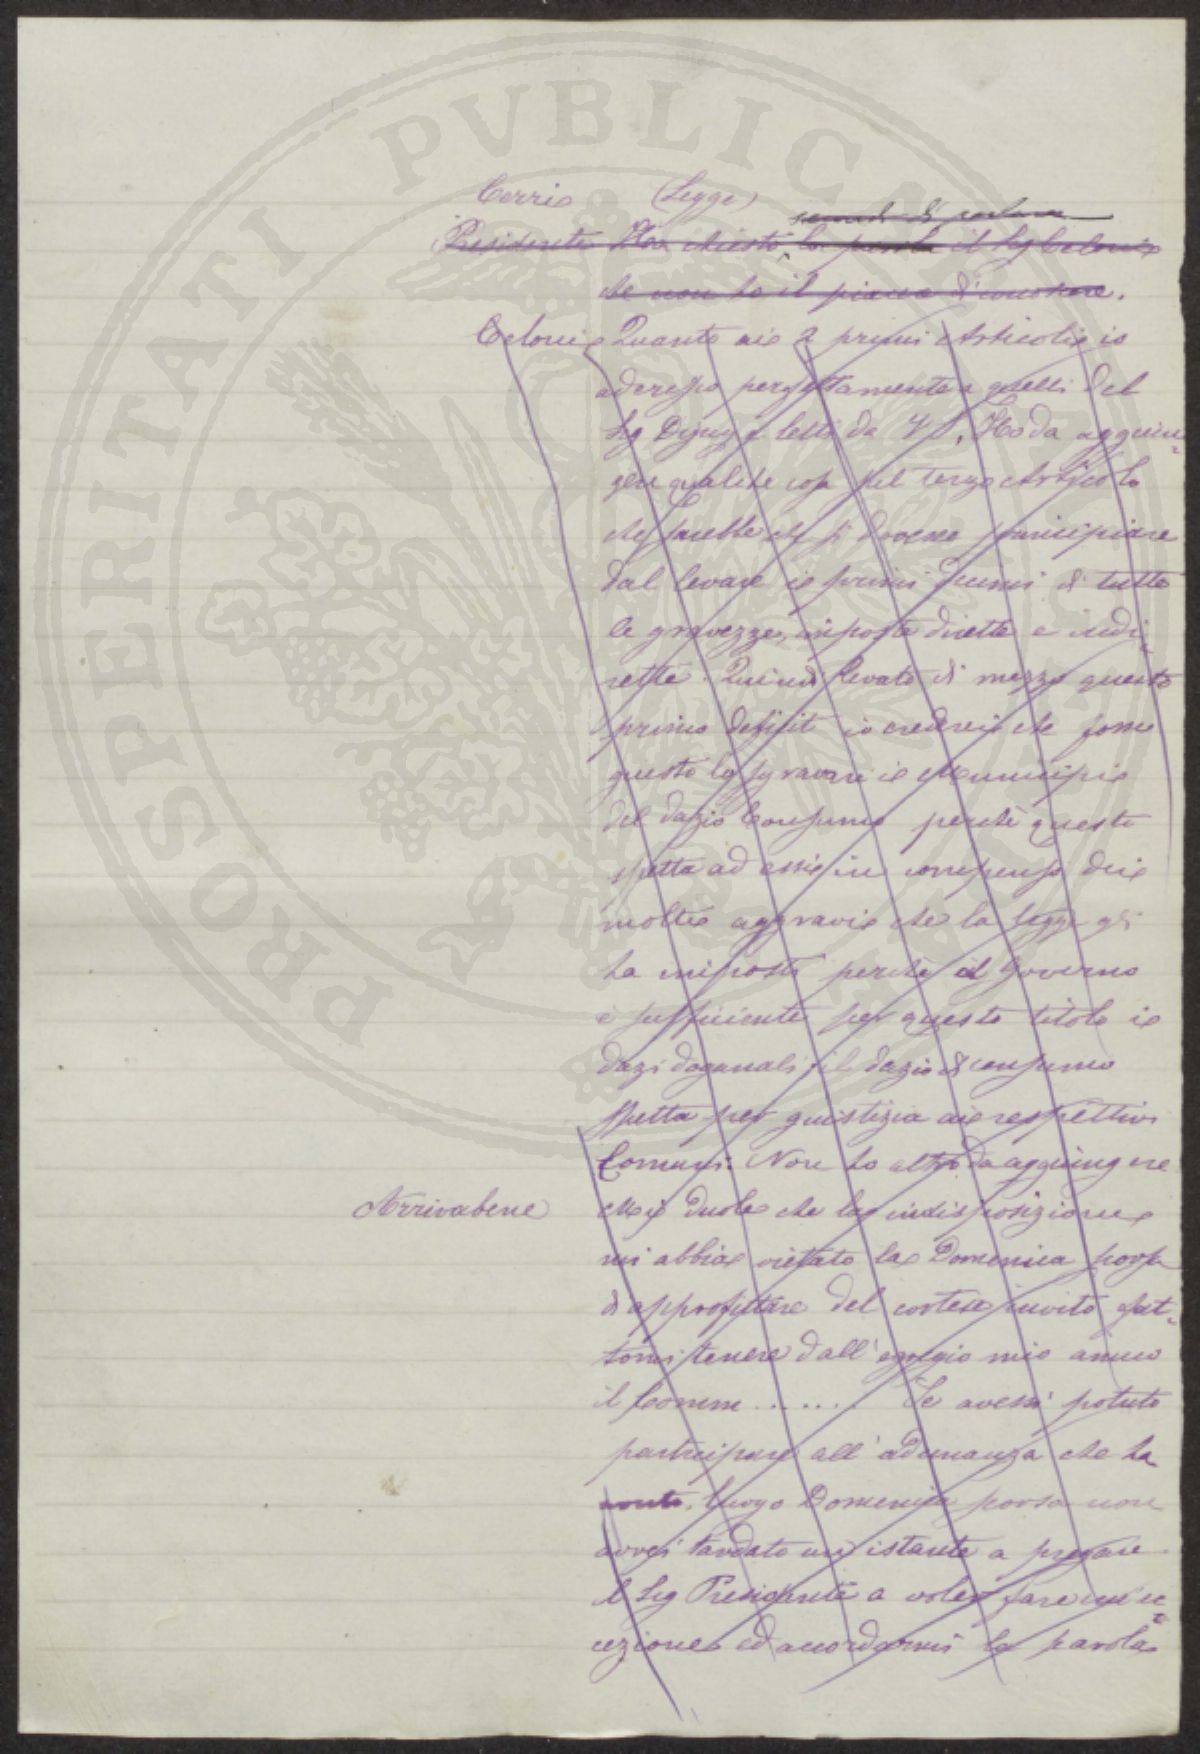 Cerri (Legge)
domanda di parlare
Presidente Ha chiesto la parola il Sig Celoni
che non ho il piacere di conoscere.
Celoni Quanto ai 2 primi Articoli io
aderisco perfettamente a quelli del
Sig letti da Ho da aggiun-
gere qualche cosa sul terzo Articolo
che sarebbe che si dovesse principiare
dal levare i primi decimi di tutte
le gravezze, imposte dirette e indi-
rette. Quindi levato di mezzo questo
primo deficit io crederei che fosse
questo lo sgravare i Municipi
del dazio Consumo perchè questo
spetta ad essi in compenso dei
molti aggravi che la legge gli
ha imposti perchè al Governo
è sufficiente per questo titolo i
dazi doganali il dazio di consumo
spetta per giustizia ai respettivi
Comuni. Non ho altro da aggiungere
Arrivabene Mi duole che la indisposizione
mi abbia vietato la Domenica scorsa
di approfittare del cortese invito fat-
tomi tenere dall'egregio mio amico
il Comm ...... Se avessi potuto
partecipare all'adunanza che ha
avuto luogo Domenica scorsa non
avrei tardato un istante a pregare
il Sig Presidente a voler fare un'ec-
cezione ed accordarmi la parola